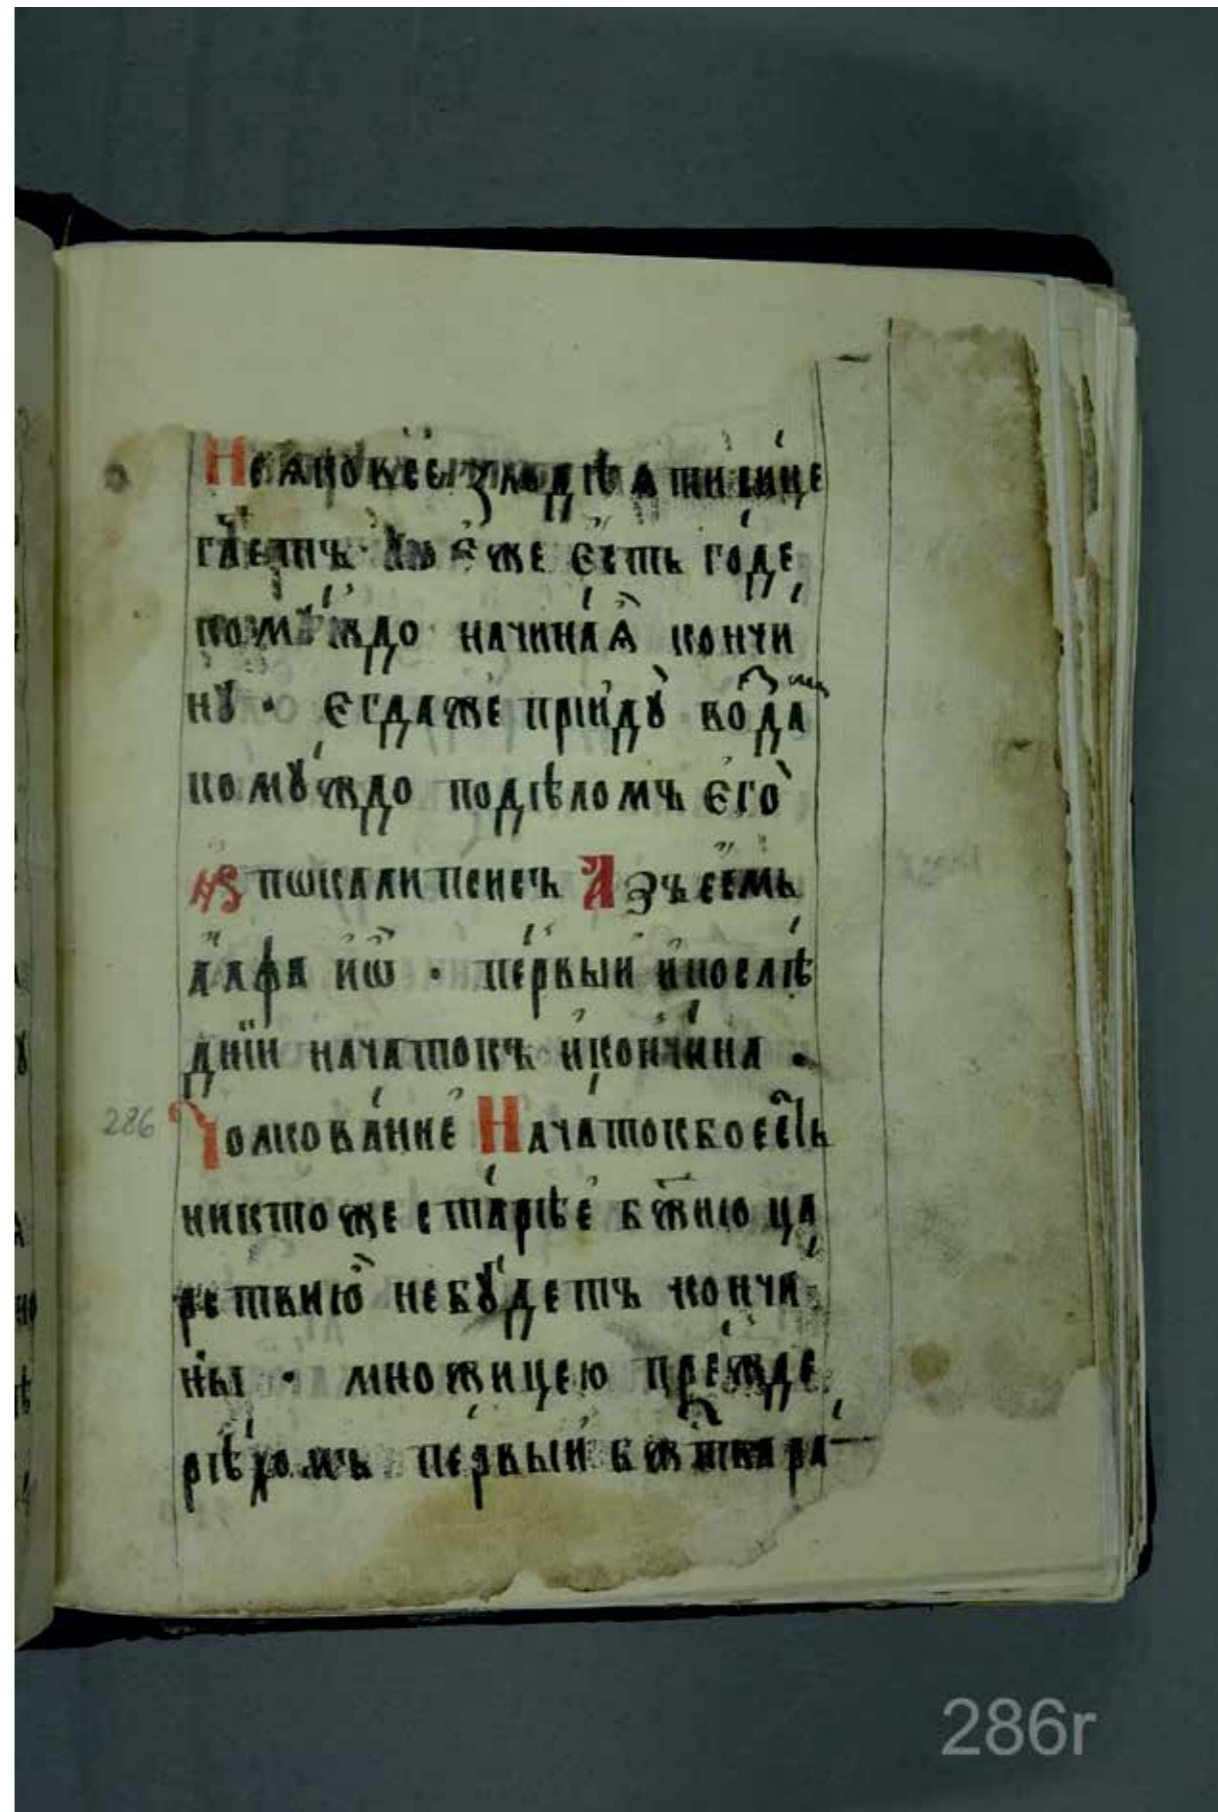 Не яко всѣ злодѣяти сице
гл҃етъ · нѡ є҆же є҆сть годѣ
комꙋ́ждо начина́ѧ кончи
нꙋ̀ · є҆гда же прїидꙋ̀ возда́ти
комꙋ́ждо подѣломъ є҆го̀
А҆з
покалипсисъ А҆зъ є҆смь
а҆лфа и҆ ѡ҆ · пе́рвыи и҆ послѣ́
днїи начатокъ и҆ кончина ·
Толкова́ние Начаток бо є҆сть
никтоже ста́рѣе бж҃ию ца́
рствию не бꙋ́детъ кончи
ны · множицею пре́жде
рѣхомъ пе́рвыи бж҃тва ра́
286
286r